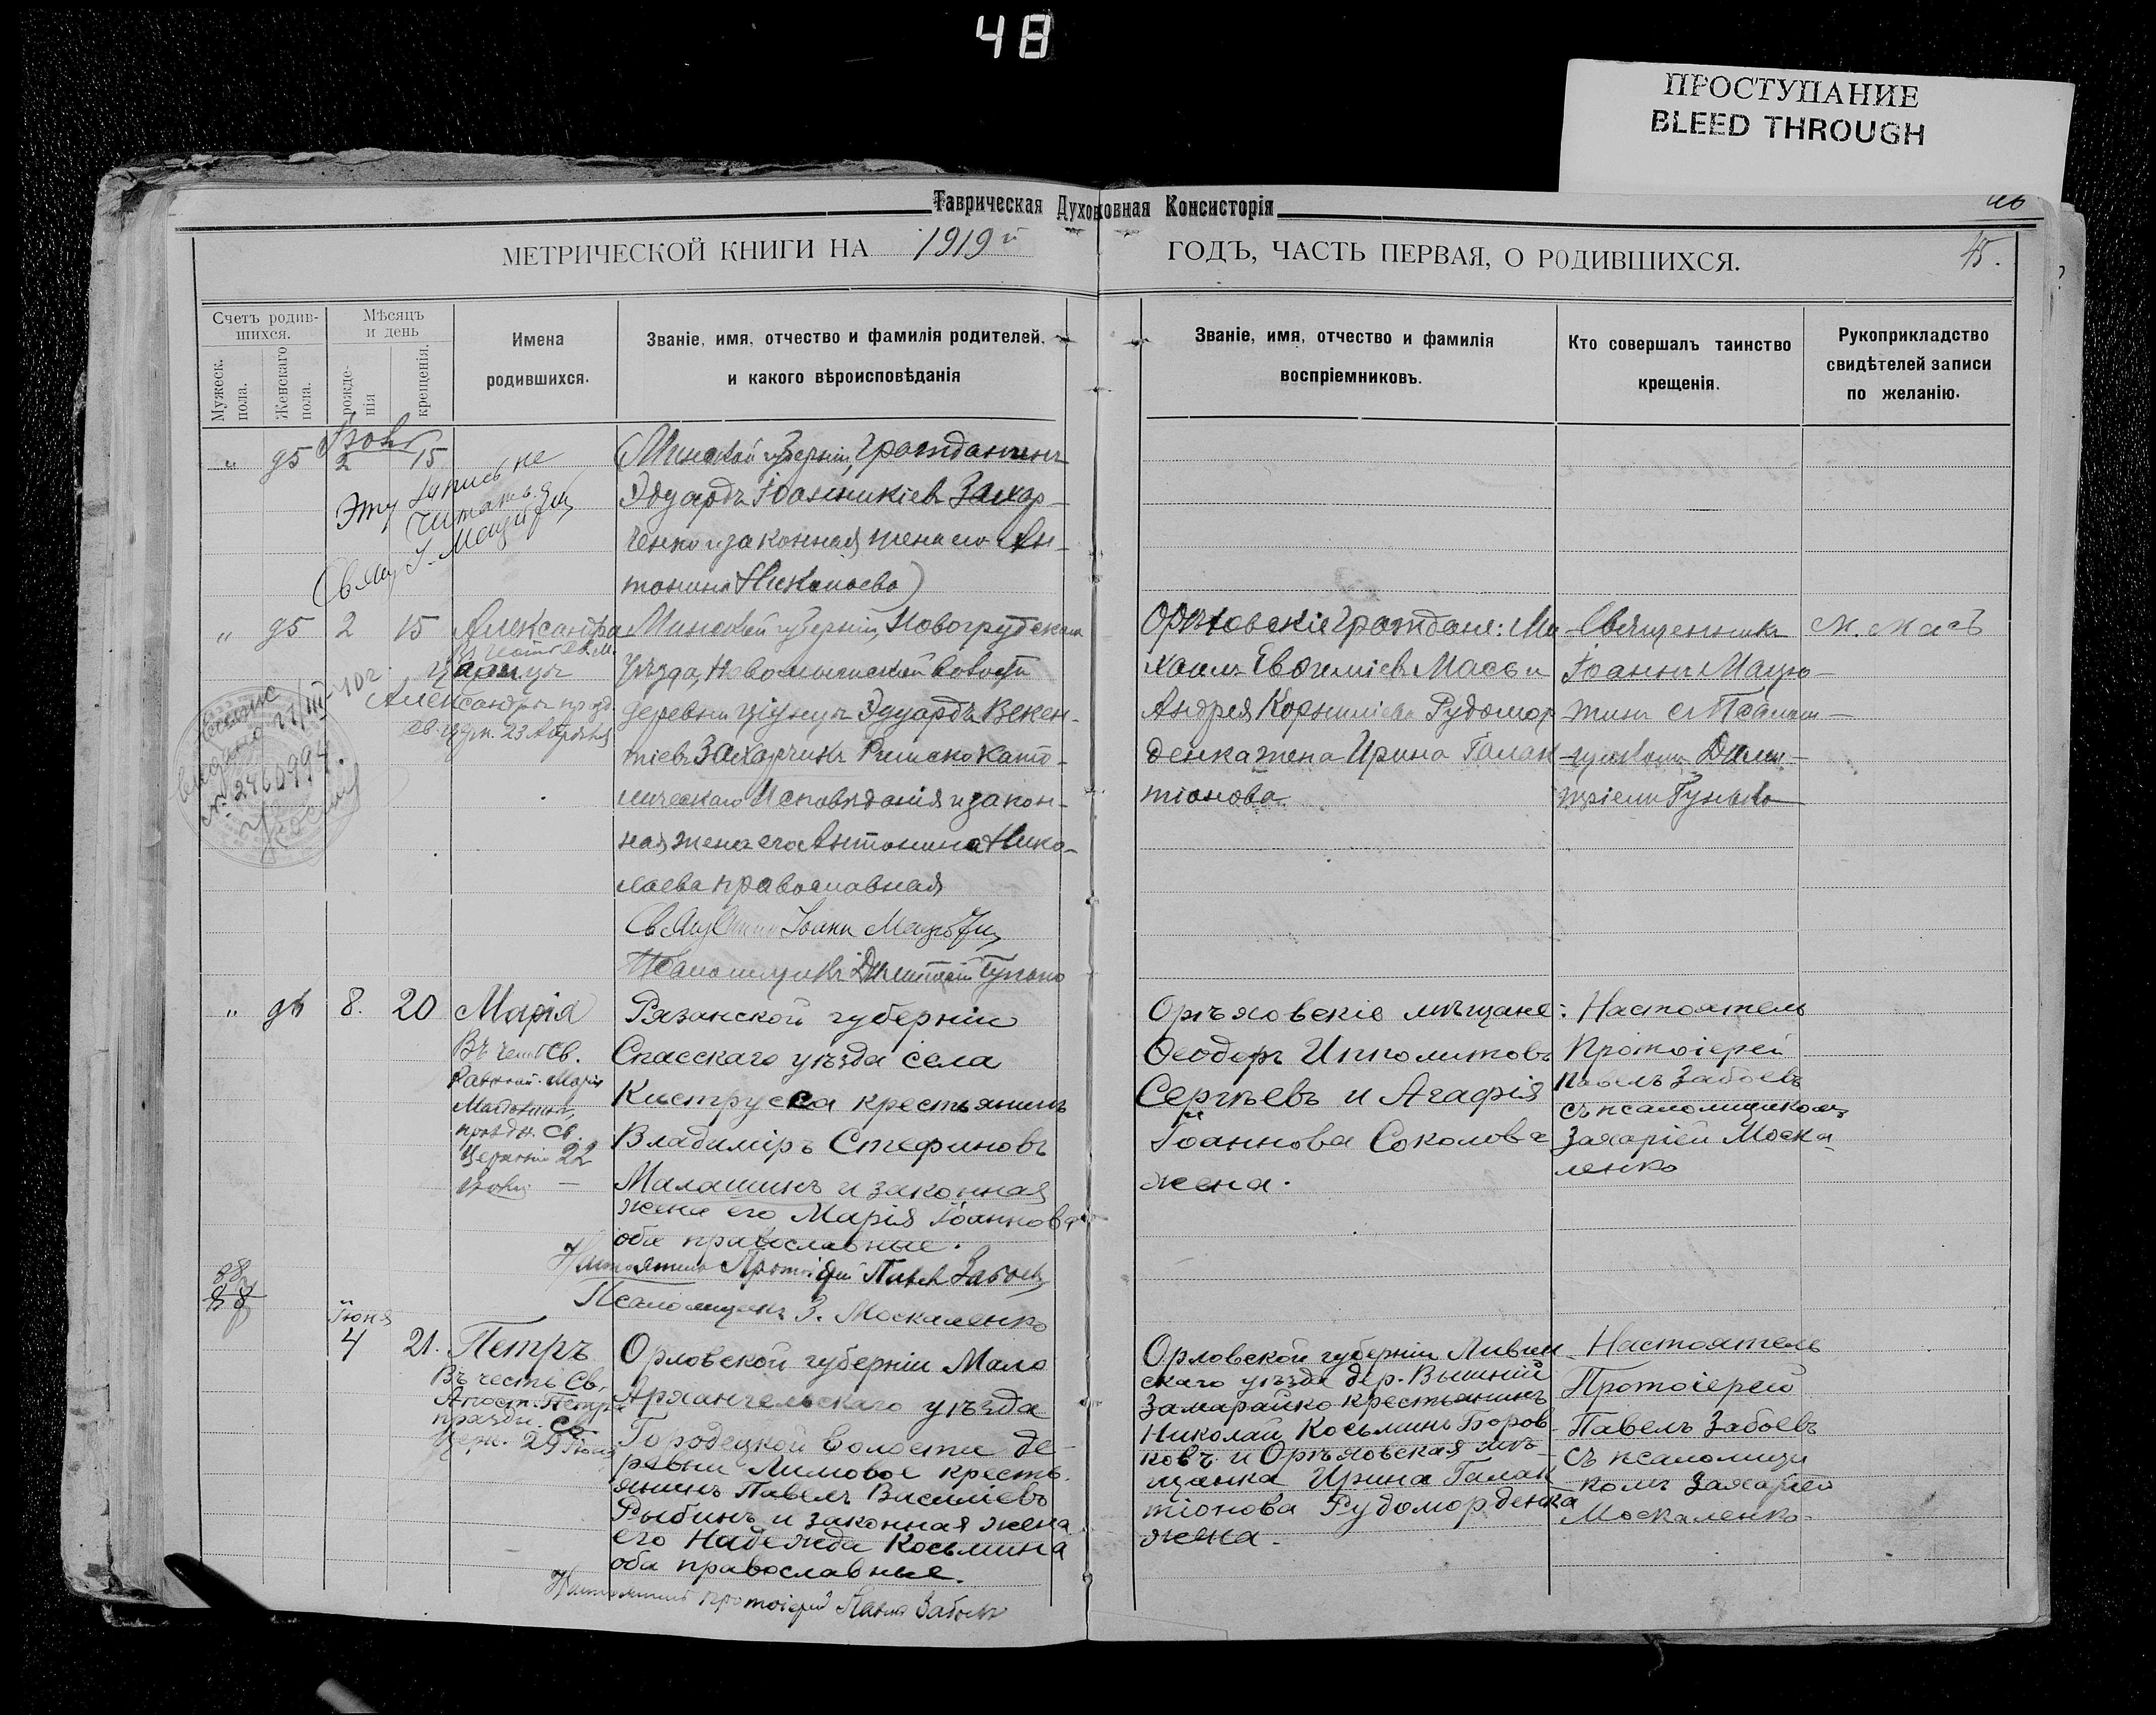 48
ПРОСТУПАНИЕ
BLEED THROUGH
Таврическая Духовная Консисторія
МЕТРИЧЕСКОЙ КНИГИ НА 1919й ГОДЪ, ЧАСТЬ ПЕРВАЯ, О РОДИВШИХСЯ.
45.
Счетъ родившихся.
Мужеск. пола.
Женскаго пола.
Мѣсяцъ и день
рожденія
крещенія.
Имена родившихся.
Званіе, имя, отчество и фамилія родителей, и какого вѣроисповѣданія
Званіе, имя, отчество и фамилія воспріемниковъ.
Кто совершалъ таинство крещенія.
Рукоприкладство свидѣтелей записи по желанію.
" 95 2 15
Эту запись не
читать.
(Минской губерніи, гражданинъ
Эдуардъ Іоанникіевъ Захар-
ченко и законная жена его Ан-
тонина Николаева)
" 95 2 15 Александра
Царицы
Александры празд.
св. церк. 23 Апрѣля
Минской губерніи, Новогрудскаго
уѣзда,
деревни Эдуардъ Викен-
тіевъ Захарчикъ Римско Като-
лическаго Исповѣданія и закон-
ная жена его Антонина Нико-
лаева православная
Іоаннъ
Псаломщикъ Димитрій Гунько
Орѣховскіе граждане: Ми-
хаилъ Евѳиміевъ Масъ и
Андрея Корниліева Рудомор-
денка жена Ирина Галак-
тіонова.
Священникъ
Іоаннъ Мацю-
тинъ с Псалом-
щикомъ Дими-
тріемъ Гунько
М. Масъ
№ 2460994.
" 96 8. 20 Марія
Въ честь Св.
Равноап. Маріи
Магдалины,
празд. Св.
Церковію 22
Іюля
Рязанской губерніи
Спасскаго уѣзда села
Киструса крестьянинъ
Владиміръ Стефановъ
Малашинъ и законная
жена его Марія Іоаннова
оба православные.
Настоятель Протоіерей Павелъ Забоевъ
Псаломщикъ З. Москаленко
Орѣховскіе мѣщане:
Ѳеодоръ Ипполитовъ
Сергѣевъ и Агафія
Іоаннова Соколова
жена.
Настоятель
Протоіерей
Павелъ Забоевъ
съ псаломщикомъ
Захаріей Моска-
ленко
88
Іюня
4 21. Петръ
Въ честь Св.
Апост. Петра
праздн. Св.
Церк. 29 Іюня
Орловской губерніи Мало
Архангельскаго уѣзда
Городецкой волости де-
ревни Лимовое кресть-
янинъ Павелъ Василіевъ
Рыбинъ и законная жена
его Надежда Косьмина
оба православные.
Настоятель протоіерей Павелъ Забоевъ
Орловской губерніи Ливен-
скаго уѣзда дер. Вышній
Замарайко крестьянинъ
Николай Косьминъ Боров-
ковъ и Орѣховская мѣ-
щанка Ирина Галак-
тіонова Рудоморденка
жена.
Настоятель
Протоіерей
Павелъ Забоевъ
съ псаломщи-
комъ Захаріей
Москаленко.